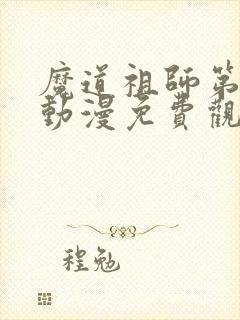 魔道祖師第
動漫免費觀
程勉